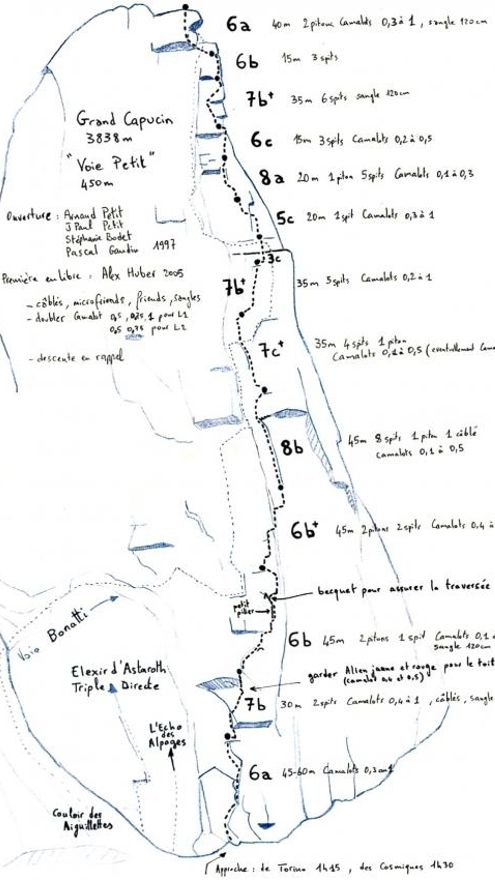 6a 40m 2 pitons Camalots 0,3 à 1, sangle 120cm
6b 15m 3 spits
7b+ 35m 6 spits sangle 120cm
Grand Capucin
3838m
"Voie Petit"
450m
6c 15m 3 spits Camalots 0,2 à 0,5
8a 20m 1 piton 5 spits Camalots 0,1 à 0,3
Ouverture : Arnaud Petit
J Paul Petit
Stéphanie Bodet
Pascal Gaudin 1997
5c 20m 1 spit Camalots 0,3 à 1
3c
Première en libre : Alex Huber 2005
7b+ 35m 5 spits Camalots 0,2 à 1
- câblés, microfriends, friends, sangles
- doubler Camalot 0,5, 0,75, 1 pour L1
0,5 0,75 pour L2
- descente en rappel
7c+ 35m 4 spits 1 piton
Camalots 0,1 à 0,5 (eventuellement Cam
8b 45m 8 spits 1 piton 1 câblé
Camalots 0,1 à 0,5
6b+ 45m 2 pitons 2 spits Camalots 0,4 à
becquet pour assurer la traversée
petit
pilier
Voie Bonatti
6b 45m 2 pitons 1 spit Camalots 0,1
sangle 120cm
Elexir d'Astaroth
Triple Directe
garder Alien jaune et rouge pour le toit
(camalot 0,4 et 0,5)
7b 30m 2 spits Camalots 0,4 à 1, câblés, sangle
L'Echo
des
Alpages
6a 45-60m Camalots 0,3 à 1
Couloir des
Aiguillettes
Approche : de Torino 1h15, des Cosmiques 1h30